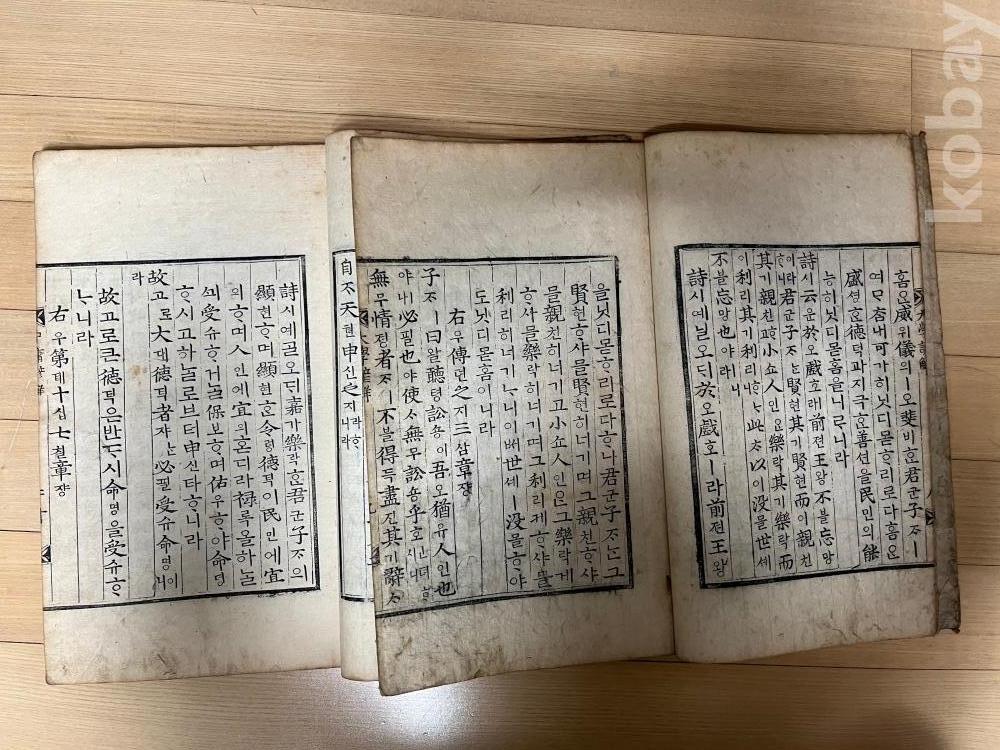 홈온威위儀의ㅣ오斐비ᄒᆞᆫ君군子ᄌᆞㅣ
여ᄆᆞᄎᆞᆷ내可가히닛디몯ᄒᆞ리로다홈ᄋᆞᆫ
盛셩ᄒᆞᆫ德덕과지극ᄒᆞᆫ善션을民민의能
능히닛디몯홈을니ᄅᆞ니라
詩시云운於오戱호ㅣ라前젼王왕不블忘망
이라君군子ᄌᆞᄂᆞᆫ賢현其기賢현而이親친
其기親친ᄒᆞ고小쇼人인ᄋᆞᆫ樂락其기樂락而
이利리其기利리ᄒᆞᄂᆞ니此ᄎᆞ以이没몰世셰
不블忘망也야ㅣ니라
詩시예닐오ᄃᆡ於오戱호ㅣ라前젼王왕
을닛디몯ᄒᆞ리로다ᄒᆞ니君군子ᄌᆞᄂᆞᆫ그
賢현ᄒᆞ샤ᄆᆞᆯ賢현히너기며그親친ᄒᆞ샤
ᄆᆞᆯ親친히너기고小쇼人인은그樂락게
ᄒᆞ샤ᄆᆞᆯ樂락히너기며그利리케ᄒᆞ샤ᄆᆞᆯ
利리히너기ᄂᆞ니이ᄡᅥ世셰ㅣ没몰ᄒᆞ야
도닛디몯홈이니라
右우傳뎐之지三삼章쟝
子ᄌᆞㅣ曰왈聽텽訟숑이吾오猶유人인也
야ㅣ나必필也야使ᄉᆞ無무訟숑乎호ᅟᅵᆫ뎌ᄒᆞ시니
無무情졍者쟈ㅣ不블得득盡진其기辭ᄉᆞ
大學諺解
自ᄌᆞ天텬申신之지라ᄒᆞ니라
詩시예ᄀᆞᆯ오ᄃᆡ嘉가樂락ᄒᆞᆫ君군子ᄌᆞ의
顯현ᄒᆞ며顯현ᄒᆞᆫ令령德덕이民민에宜
의ᄒᆞ며人인에宜의ᄒᆞᆫ디라祿록을하ᄂᆞᆯ
ᄭᅴ受슈ᄒᆞ거ᄂᆞᆯ保보ᄒᆞ며佑우ᄒᆞ야命명
ᄒᆞ시고하ᄂᆞᆯ로브터申신타ᄒᆞ니라
故고로大대德덕者쟈ᄂᆞᆫ必필受슈命명이니
라
故고로큰德덕은반ᄃᆞ시命명을受슈ᄒᆞ
ᄂᆞ니라
右우第뎨十십七칠章쟝
kobay